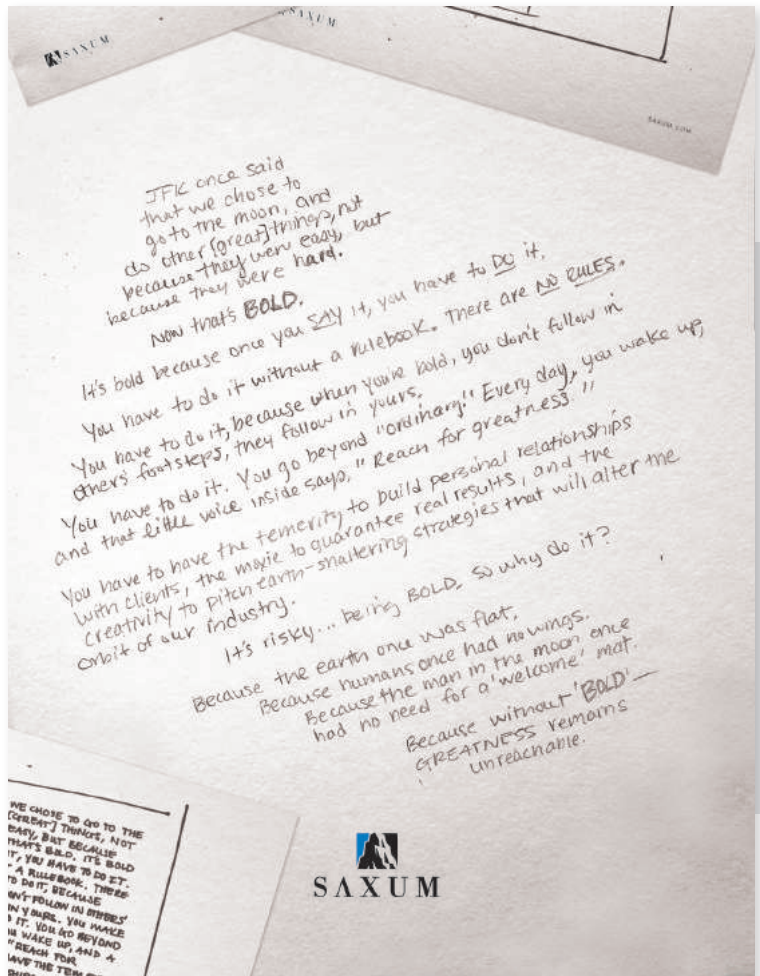 SAXUM
SAXUM
SAXUM.COM
JFK once said
that we chose to
go to the moon, and
do other [great] things, not
because they were easy, but
because they were hard.
Now that's BOLD.
It's bold because once you SAY it, you have to DO it.
You have to do it without a rulebook. There are NO RULES.
You have to do it, because when you're bold, you don't follow in
others' footsteps, they follow in yours.
You have to do it. You go beyond "ordinary." Every day, you wake up,
and that little voice inside says, "Reach for greatness."
You have to have the temerity to build personal relationships
with clients, the moxie to guarantee real results, and the
creativity to pitch earth-shattering strategies that will alter the
orbit of our industry.
It's risky... being BOLD. So why do it?
Because the earth once was flat.
Because humans once had no wings.
Because the man in the moon once
had no need for a 'welcome' mat.
Because without 'BOLD' —
GREATNESS remains
unreachable.
WE CHOSE TO GO TO THE
[GREAT] THINGS, NOT
EASY, BUT BECAUSE
THAT'S BOLD. IT'S BOLD
IT, YOU HAVE TO DO IT.
A RULEBOOK. THERE
TO DO IT, BECAUSE
DON'T FOLLOW IN OTHERS'
IN YOURS. YOU MAKE
DO IT. YOU GO BEYOND
WAKE UP, AND A
"REACH FOR
HAVE THE TEM
SAXUM